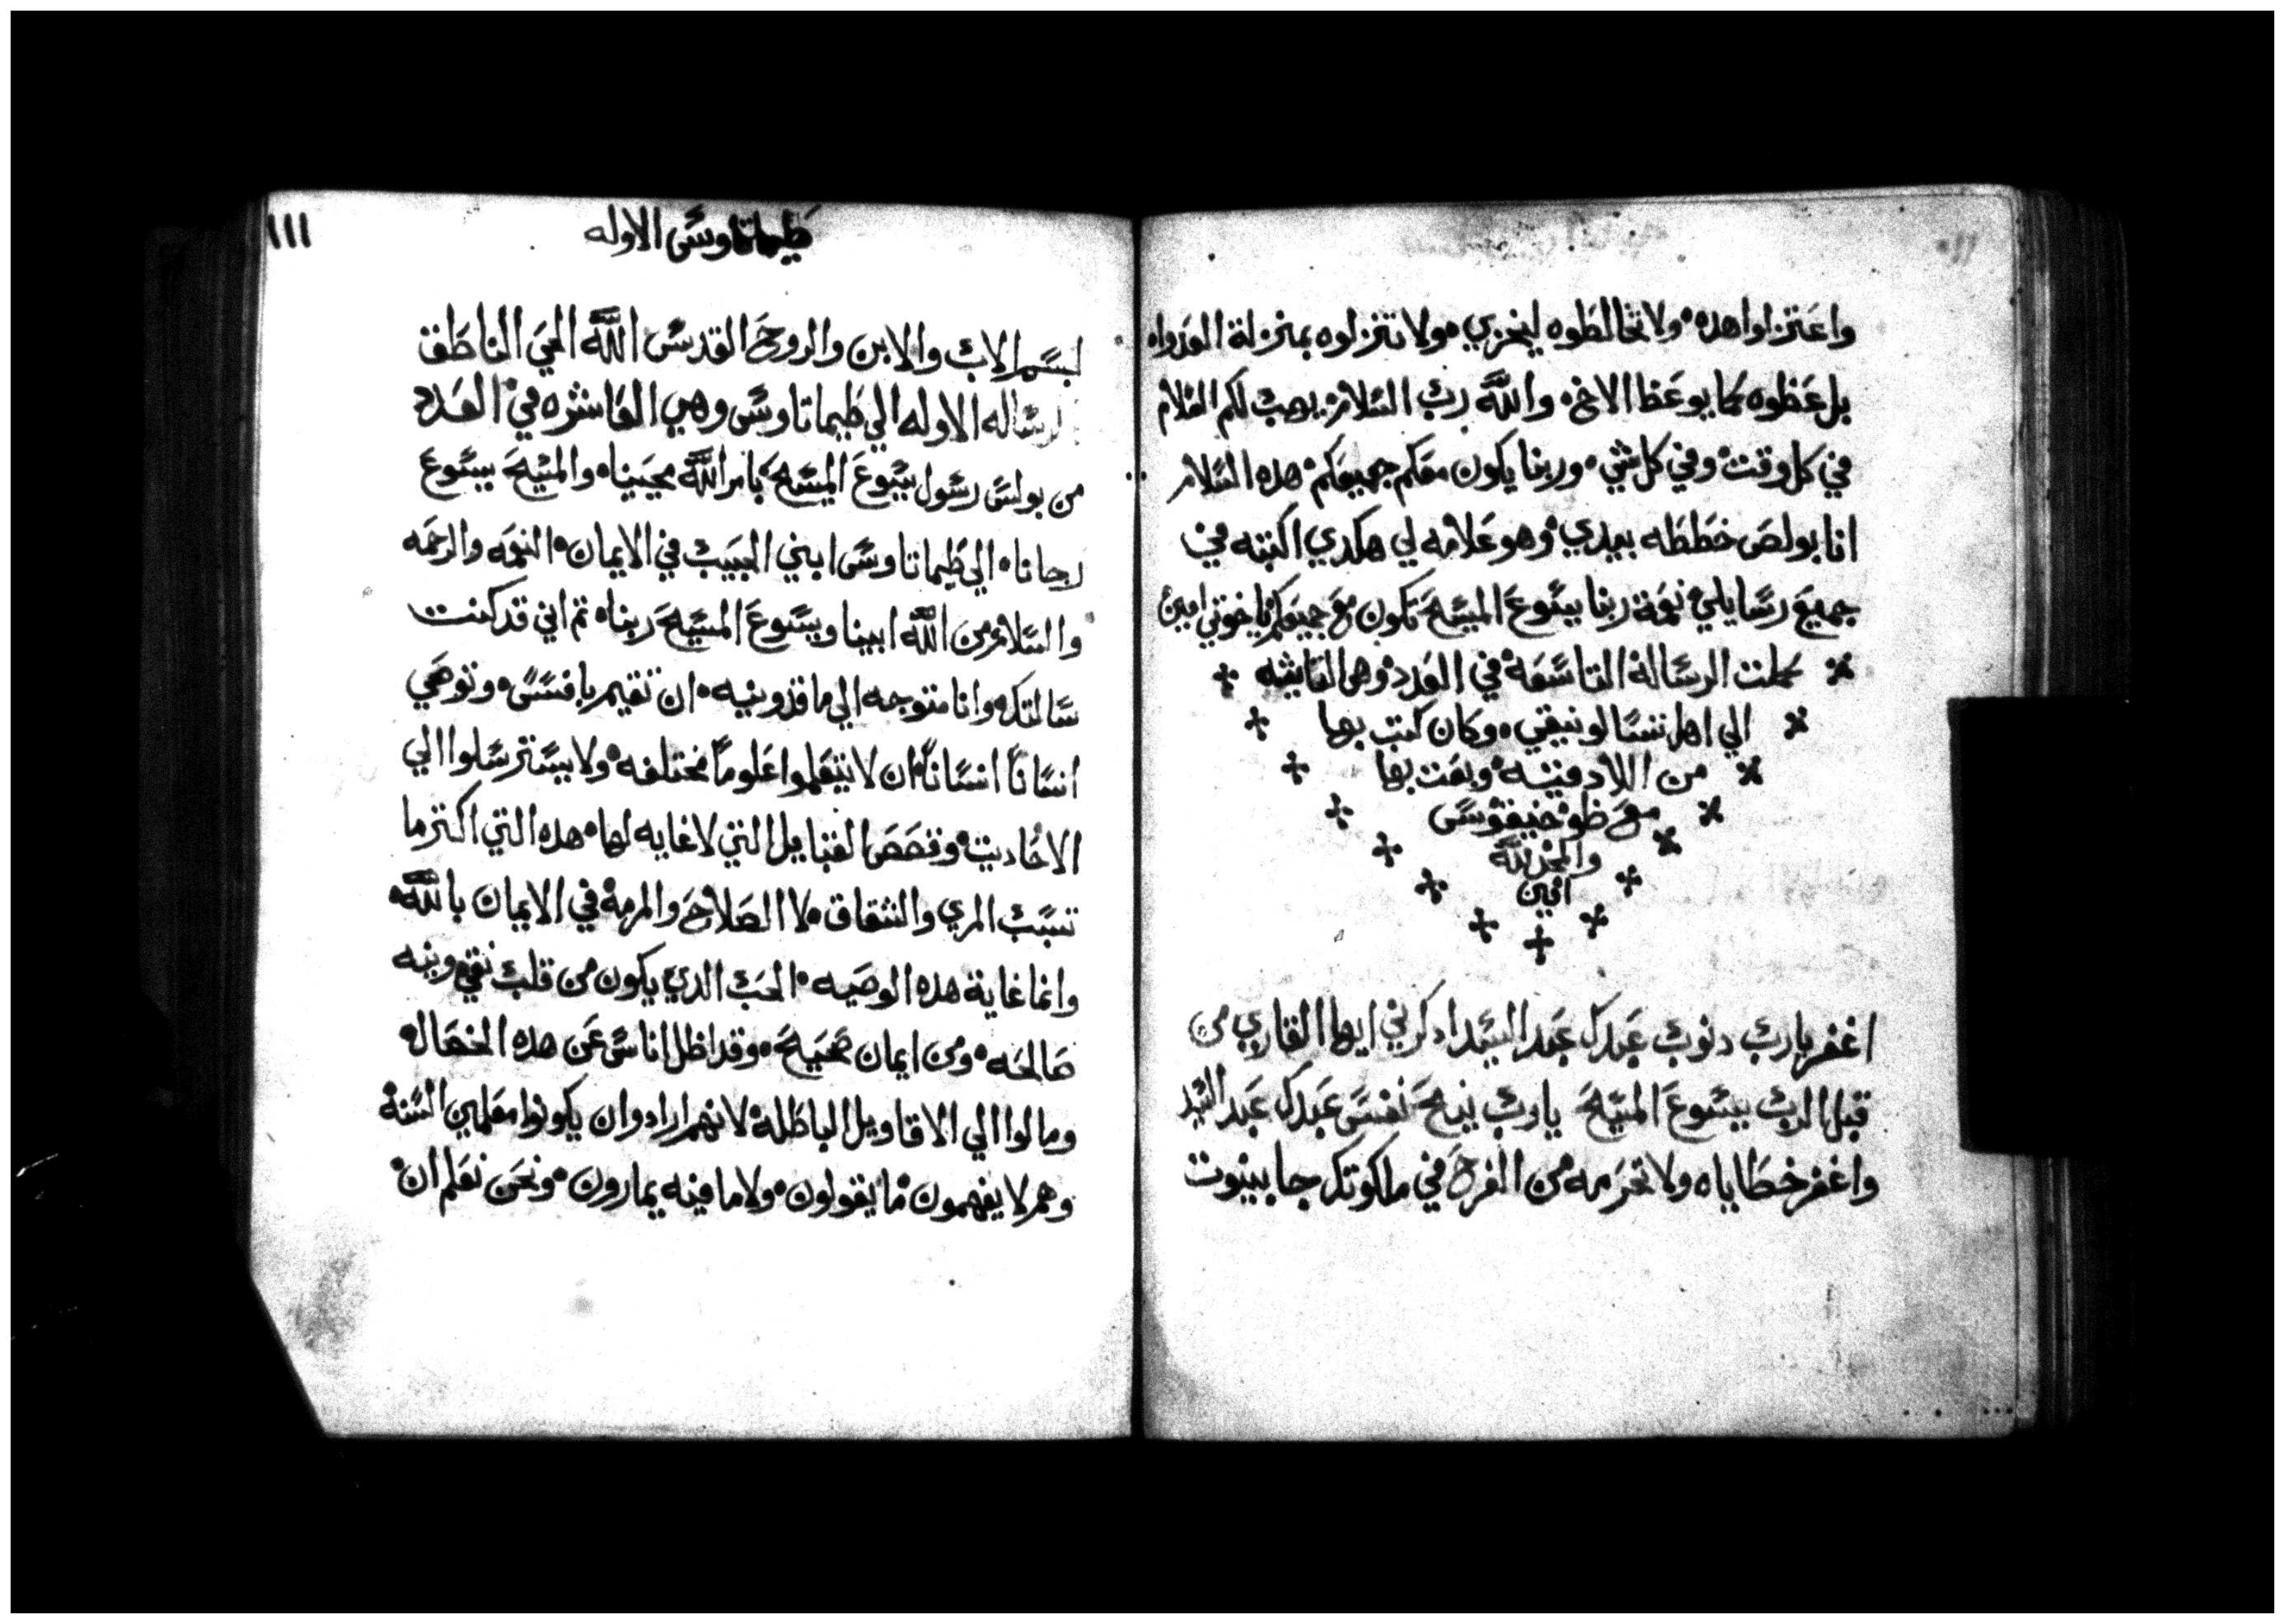 واعتزلوا هده ولا تخالطوه ليخزي ولا تنزلوه بمنزلة العدواه
بل عظوه كما يوعظ الاخ والله رب السلام يوهب لكم السلام
في كل وقت وفي كل شي وربنا يكون معكم جميعكم هده السلام
انا بولص خططه بيدي وهو علامه لي هكدي اكتبه في
جميع رسايلي نعمة ربنا يسوع المسيح تكون مع جميعكم ياخوتي امين
كملت الرسالة التاسعة في العدد وهي التانيه
الي اهل تسالونيقي وكان كتب بها
من اللادقيه وبعت بها
مع طوخيقوس
والحمد لله
امين
اغفر يارب دنوب عبدك عبد السيد ادكرني ايها القاري من
قبل الرب يسوع المسيح يارب نيح نفس عبدك عبد السيد
واغفر خطاياه ولا تحرمه من الفرح في ملكوتك
طيماتاوس الاوله
١١١
بسم الاب والابن والروح القدس الله الحي الناطق
رساله الاوله الي طيماتاوس وهي العاشره في العدد
من بولس رسول يسوع المسيح بامر الله محيينا والمسيح يسوع
رجانا الي طيماتاوس ابني الحبيب في الايمان النعمه والرحمه
والسلام من الله ابينا ويسوع المسيح ربنا تم اني قد كنت
سالتك وانا متوجه الي ماقدونيه ان تقيم بافسس وتوصي
انسانا انسانا ان لا يتعلموا علوما مختلفه ولا يسترسلوا الي
الاحاديت وقصص القبايل التي لا غايه لها هده التي اكتر ما
تسبب المري والشقاق لا الصلاح والمرمة في الايمان بالله
وانما غاية هده الوصيه الحب الدي يكون من قلب نقي ونيه
صالحه ومن ايمان صحيح وقد اظل اناس عن هده الخصال
ومالوا الي الاقاويل الباطلة لانهم ارادوا ان يكونوا معلمين السنة
وهم لا يفهمون ما يقولون ولا ما فيه يمارون ونحن نعلم ان